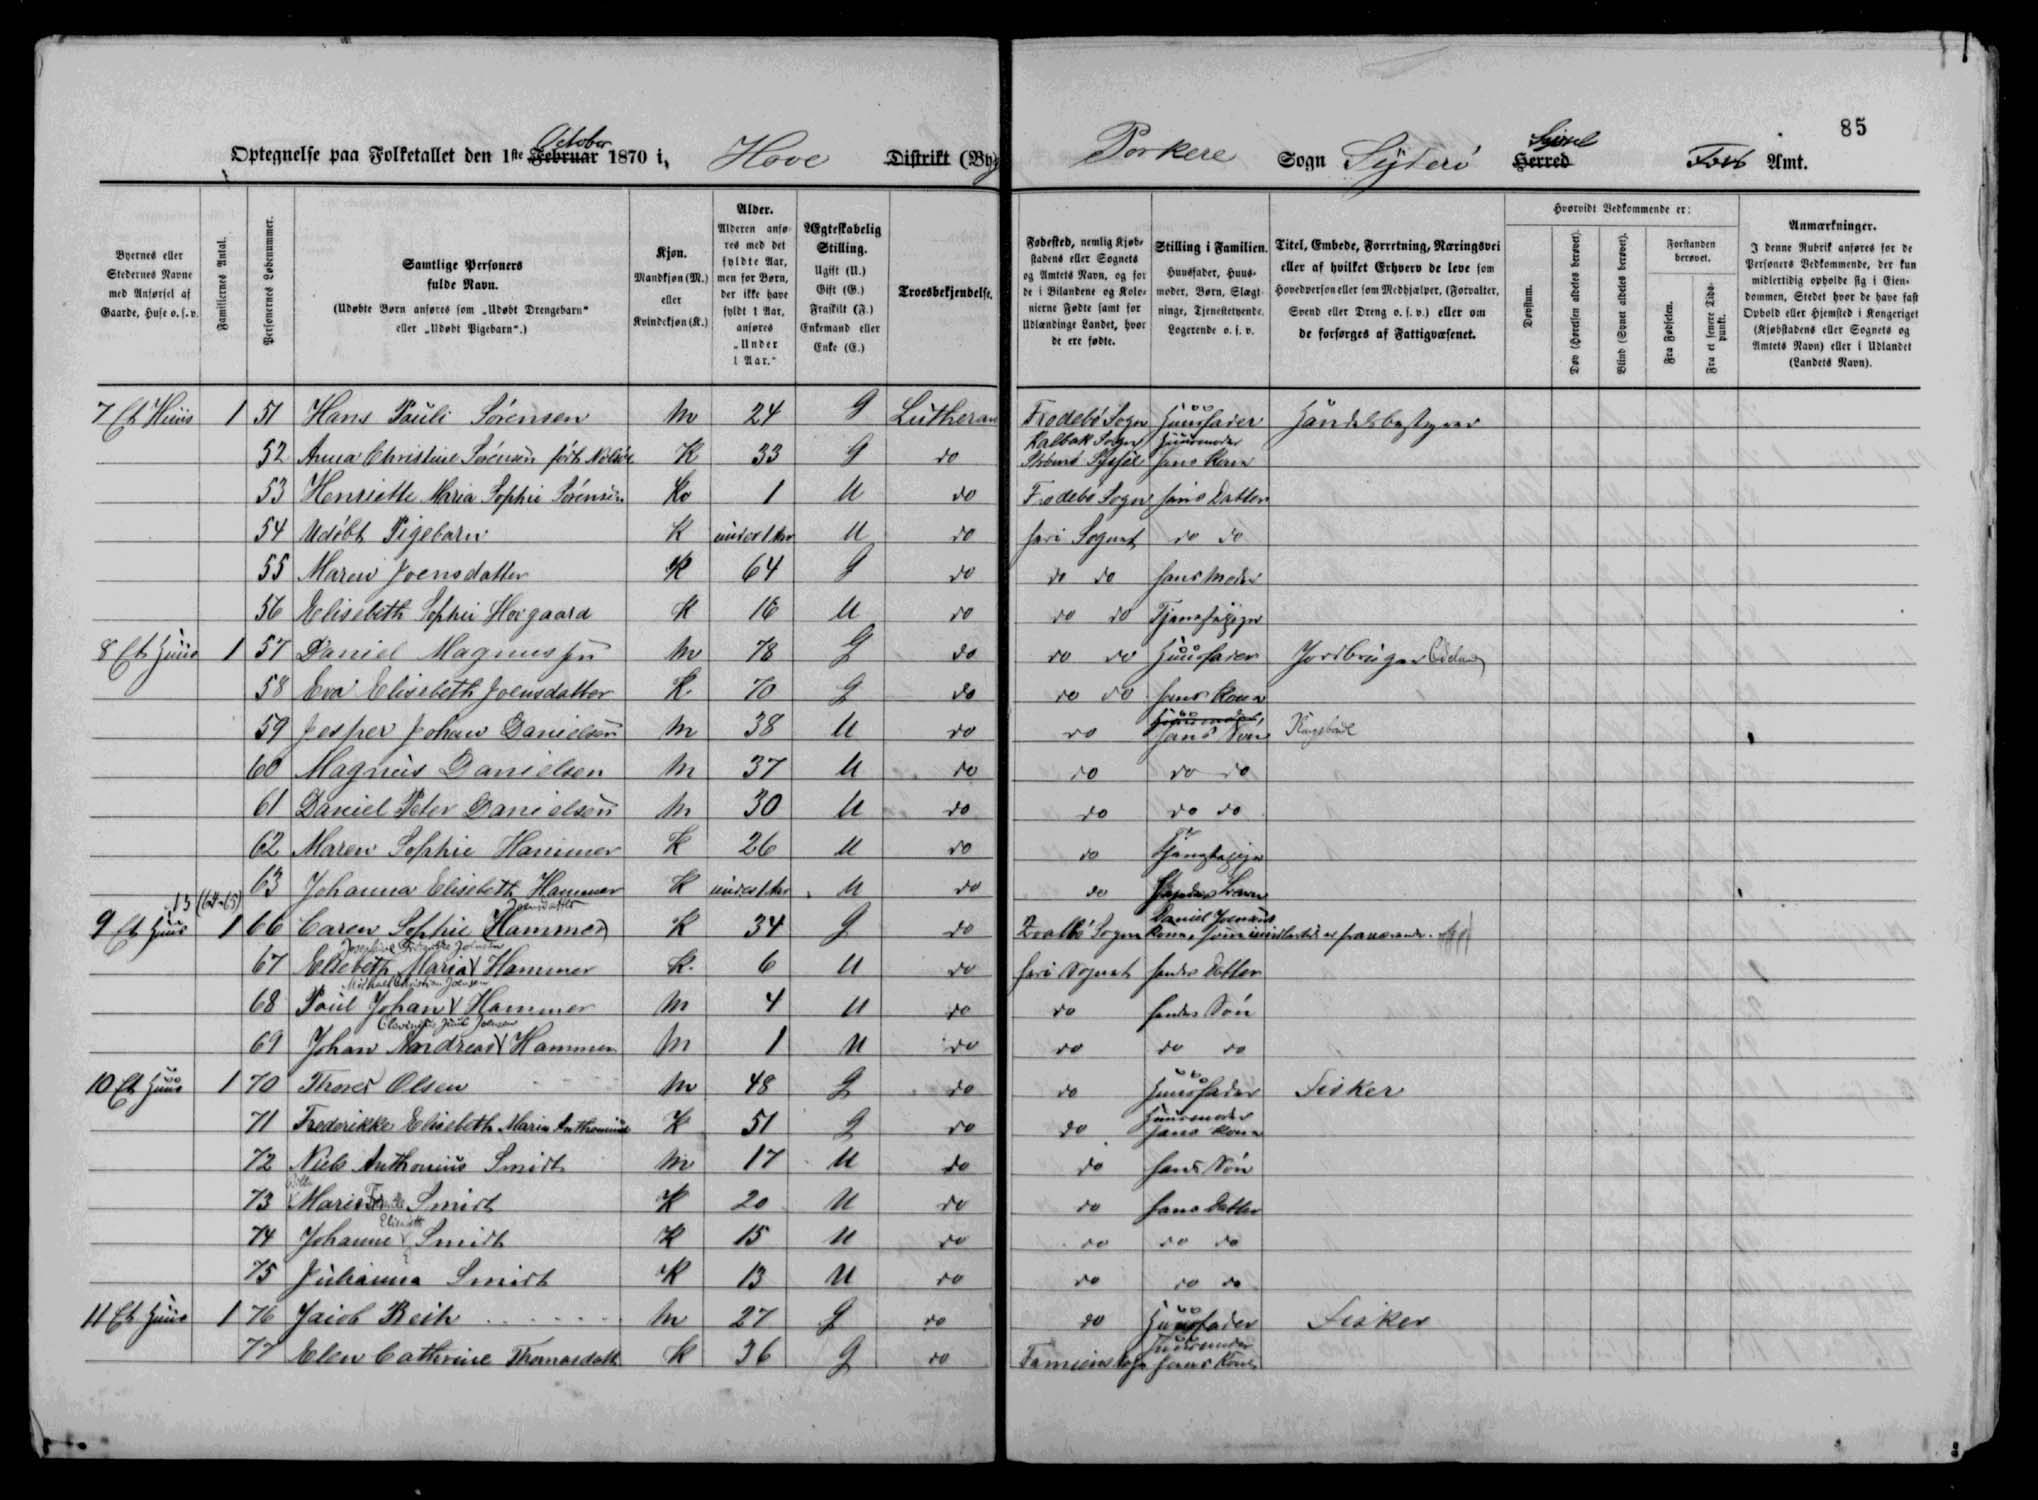 85
Optegnelse paa Folketallet den 1ste Februar October 1870 i, Hove Distrikt (By
Porkere Sogn Syderö Herred Syssel Amt.
Byernes eller Stedernes Navne med Anførsel af Gaarde, Huse o. s. v.
Familiernes Antal.
Personernes Løbenummer.
Samtlige Personers fulde Navn.
(Udøbte Børn anføres som „Udøbt Drengebarn" eller „Udøbt Pigebarn".)
Kjøn.
Mandkjøn (M.) eller Kvindekjøn (K.)
Alder.
Alderen anføres med det fyldte Aar, men for Børn, der ikke have fyldt 1 Aar, anføres „Under 1 Aar."
Ægteskabelig Stilling.
Ugift (U.) Gift (G.) Fraskilt (F.) Enkemand eller Enke (E.)
Troesbekjendelse.
Fødested, nemlig Kjøbstadens eller Sognets og Amtets Navn, og for de i Bilandene og Kolonierne Fødte samt for Udlændinge Landet, hvor de ere fødte.
Stilling i Familien.
Huusfader, Huusmoder, Børn, Slægtninge, Tjenestetyende, Logerende o. s. v.
Titel, Embede, Forretning, Næringsvei eller af hvilket Erhverv de leve som Hovedperson eller som Medhjælper, (Forvalter, Svend eller Dreng o. s. v.) eller om de forsørges af Fattigvæsenet.
Hvorvidt Vedkommende er:
Døvstum.
Døv (Hørelsen aldeles berøvet).
Blind (Synet aldeles berøvet).
Forstanden berøvet.
Fra Fødselen.
Fra et senere Tidspunkt.
Anmærkninger.
I denne Rubrik anføres for de Personers Vedkommende, der kun midlertidig opholde sig i Eiendommen, Stedet hvor de have fast Ophold eller Hjemsted i Kongeriget (Kjøbstadens eller Sognets og Amtets Navn) eller i Udlandet (Landets Navn).
7 Et Huus 1 51 Hans Pauli Sörensen M 24 G Lutheran Frodebö Sogn Huusfader Handelsbestyrer
52 Anna Christine Sörensen född Nolsöe K 33 G do Kalbak Sogn Strömö Syssel Huusmoder hans Kone
53 Henriette Maria Sophie Sörensen K 1 U do Frodebö Sogn hans Datter
54 Udöbt Pigebarn K under 1 Aar U do her i Sognet do do
55 Maren Joensdatter K 64 G do do do hans Moder
56 Elisebeth Sophie Hovgaard K 16 U do do do Tjenestepige
8 Et Huus 1 57 Daniel Magnussen M 78 G do do do Huusfader Jordbruger
58 Eva Elisebeth Joensdatter K 70 G do do do hans Kone
59 Jesper Johan Danielsen M 38 U do do hans Sön Kongsbonde
60 Magnus Danielsen M 37 U do do do do
61 Daniel Peter Danielsen M 30 U do do do do
62 Maren Sophie Hammer K 26 U do do Tjenestepige
63 Johanna Elisebeth Hammer K under 1 Aar U do do
13 (64-65)
9 Et Huus 1 66 Caren Sophie Hammer Joensdatter K 34 G do Qvalbö Sogn Daniel Joensens Kone, som er fraværende.
67 Elsebeth Maria Hammer K 6 U do her i Sognet hendes Datter
Michael Christian Joensen
68 Poul Johan Hammer M 4 U do do hendes Sön
69 Johan Andreas Hammer M 1 U do do do do
10 Et Huus 1 70 Olsen M 48 G do do Huusfader Fisker
71 Frederikke Elisebeth Maria K 51 G do do Huusmoder hans Kone
72 Niels Anthonius Smidt M 17 U do do hans Sön
73 Maria Smidt K 20 U do do hans Datter
74 Johanne Elisebeth Smidt K 15 U do do do do
75 Julianna Smidt K 13 U do do do do
11 Et Huus 1 76 Jacob Beih M 27 G do do Huusfader Fisker
77 Elen Cathrine Thomasdatt K 36 G do Famien Sogn Huusmoder hans Kone